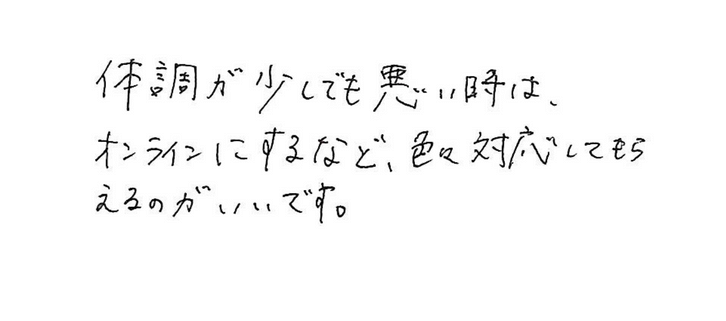 体調が少しでも悪い時は、
オンラインにするなど、色々対応してもら
えるのがいいです。